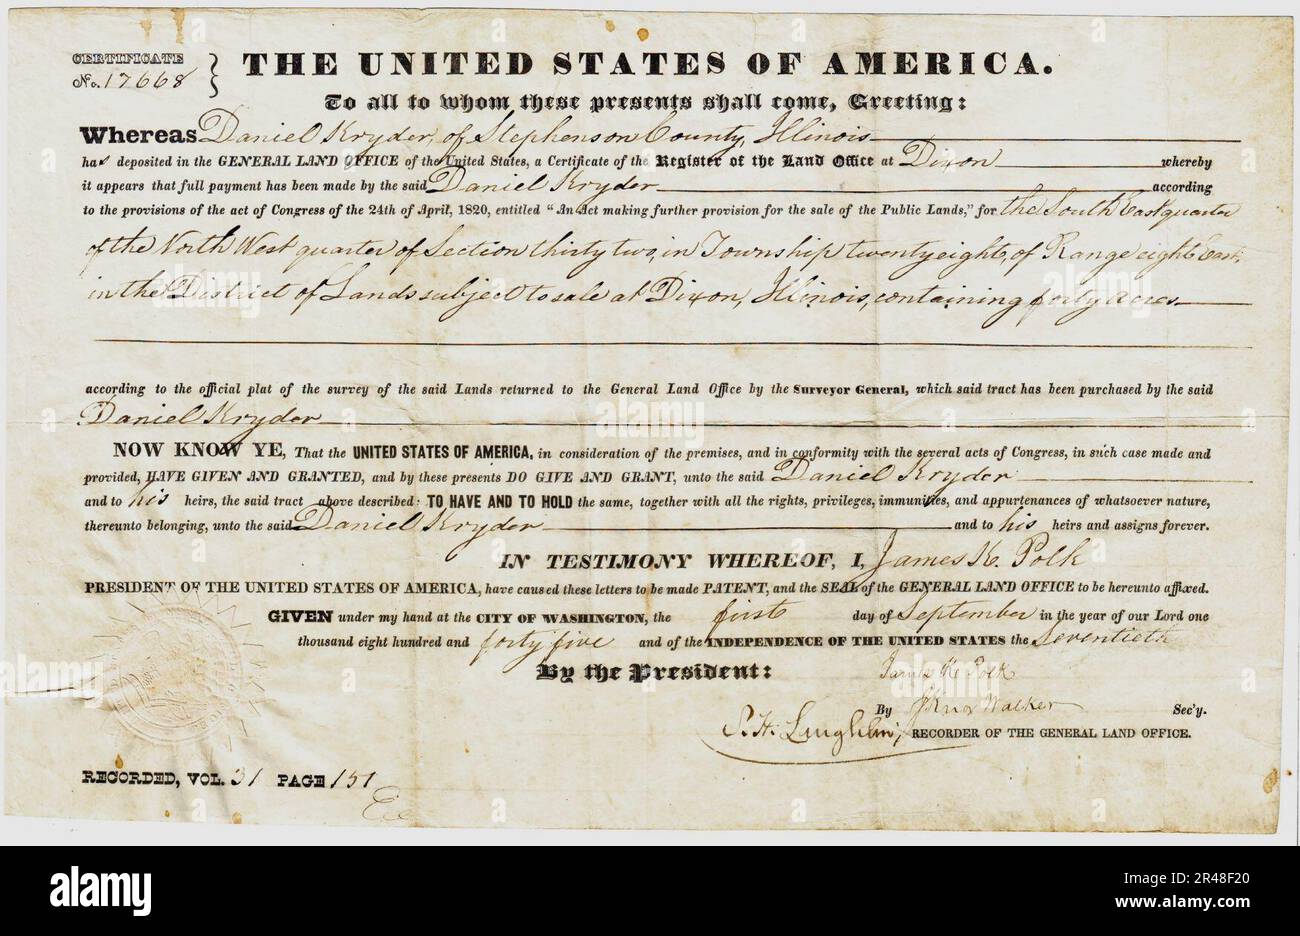 CERTIFICATE
No. 17668
THE UNITED STATES OF AMERICA.
To all to whom these presents shall come, Greeting:
Whereas Daniel Kryder, of Stephenson County, Illinois
has deposited in the GENERAL LAND OFFICE of the United States, a Certificate of the Register of the Land Office at Dixon whereby
it appears that full payment has been made by the said Daniel Kryder according
to the provisions of the act of Congress of the 24th of April, 1820, entitled "An Act making further provision for the sale of the Public Lands," for the South East quarter
of the North West quarter of Section thirty two, in Township twenty eight, of Range eight East,
in the District of Lands subject to sale at Dixon, Illinois, containing forty acres
according to the official plat of the survey of the said Lands returned to the General Land Office by the Surveyor General, which said tract has been purchased by the said
Daniel Kryder
NOW KNOW YE, That the UNITED STATES OF AMERICA, in consideration of the premises, and in conformity with the several acts of Congress, in such case made and
provided, HAVE GIVEN AND GRANTED, and by these presents DO GIVE AND GRANT, unto the said Daniel Kryder
and to his heirs, the said tract above described: TO HAVE AND TO HOLD the same, together with all the rights, privileges, immunities, and appurtenances of whatsoever nature,
thereunto belonging, unto the said Daniel Kryder and to his heirs and assigns forever.
IN TESTIMONY WHEREOF, I, James K. Polk
PRESIDENT OF THE UNITED STATES OF AMERICA, have caused these letters to be made PATENT, and the SEAL of the GENERAL LAND OFFICE to be hereunto affixed.
GIVEN under my hand at the CITY OF WASHINGTON, the first day of September in the year of our Lord one
thousand eight hundred and forty five and of the INDEPENDENCE OF THE UNITED STATES the Seventieth
By the President: James K. Polk
By J Knox Walker Sec'y.
S. H. Laughlin, RECORDER OF THE GENERAL LAND OFFICE.
RECORDED, VOL. 31 PAGE 151
alamy
Image ID: 2R48F20
www.alamy.com